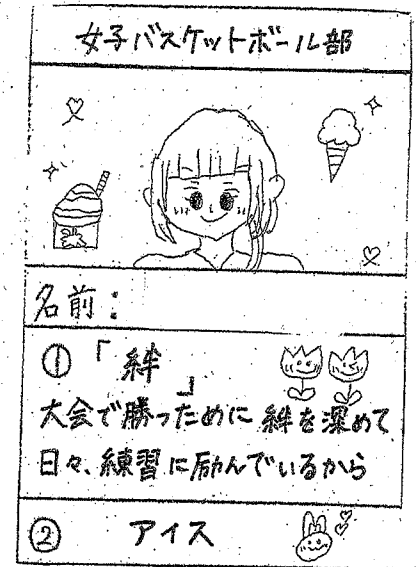 女子バスケットボール部
名前：
①「絆」
大会で勝つために絆を深めて
日々、練習に励んでいるから
② アイス